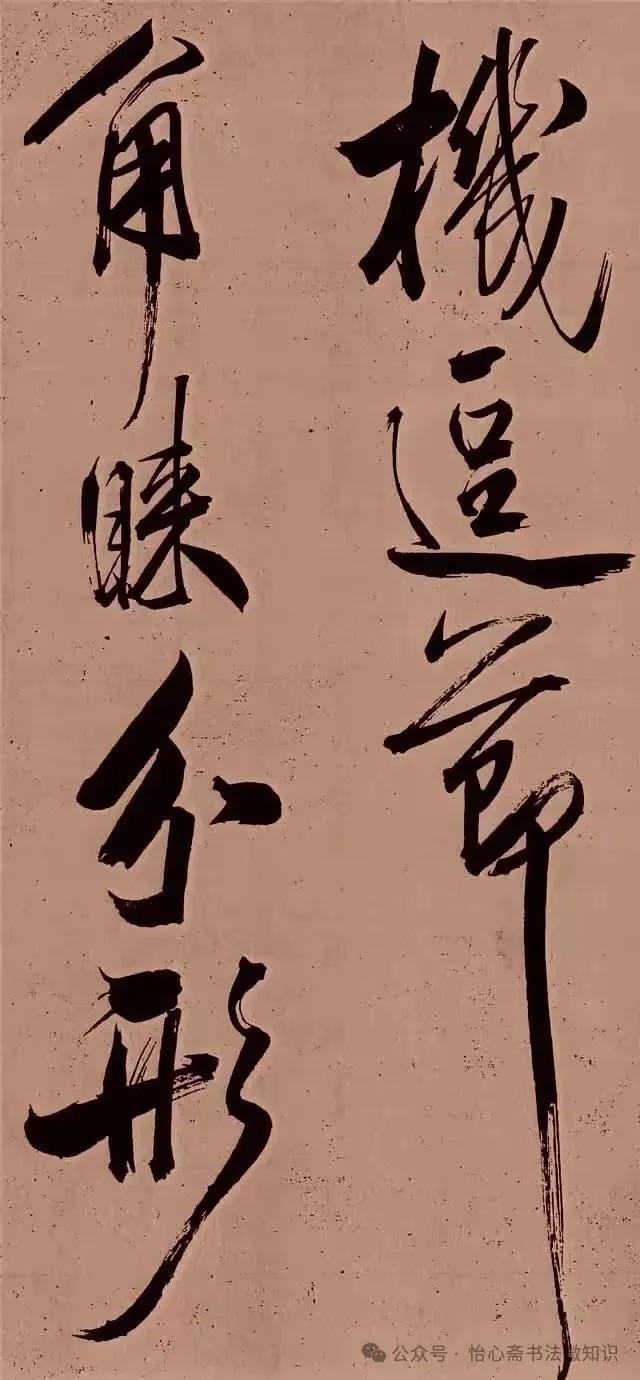 機逗節
角睐分形
公众号 · 怡心斋书法微知识